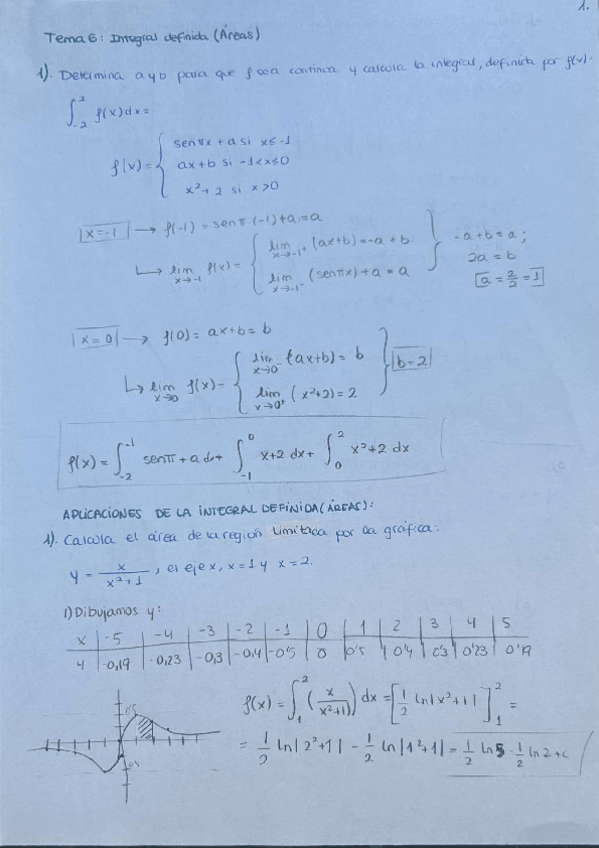 1.
Tema 6: Integral definida (Áreas)
1). Determina a y b para que f sea continua y calcula la integral, definida por f(x).
∫_{-2}^{2} f(x)dx=
f(x)= { senπx + a si x≤-1
ax+b si -1<x≤0
x²+2 si x>0
x=-1 → f(-1) = senπ(-1)+a=a
↳ lim_{x→-1} f(x)= { lim_{x→-1⁺} (ax+b)=-a+b
lim_{x→-1⁻} (senπx)+a = a
} -a+b=a;
2a=b
a=2/2=1
x=0 → f(0)= ax+b=b
↳ lim_{x→0} f(x)= { lim_{x→0⁻} (ax+b) = b
lim_{x→0⁺} (x²+2)=2
} b=2
f(x)= ∫_{-2}^{-1} senπ+a dx+ ∫_{-1}^{0} x+2 dx+ ∫_{0}^{2} x²+2 dx
APLICACIONES DE LA INTEGRAL DEFINIDA (ÁREAS):
1). Calcula el área de la región limitada por la gráfica:
y= x/(x²+1), el eje x, x=1 y x=2.
1) Dibujamos y:
x | -5 | -4 | -3 | -2 | -1 | 0 | 1 | 2 | 3 | 4 | 5
y | -0,19 | -0,23 | -0,3 | -0,4 | -0'5 | 0 | 0'5 | 0'4 | 0'3 | 0'23 | 0'19
f(x)= ∫_{1}^{2} (x/(x²+1)) dx = [1/2 ln|x²+1|]_{1}^{2} =
= 1/2 ln|2²+1| - 1/2 ln|1²+1| = 1/2 ln5 · 1/2 ln2+c
0'5